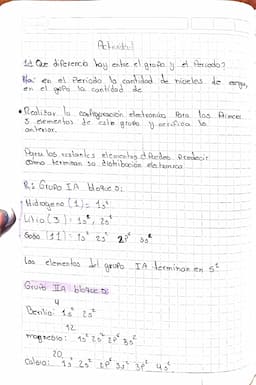 Actividad
1d Que diferencia hay entre el grupo y el Periodo?
Rta: en el Periodo la cantidad de niveles de energía,
en el grupo la cantidad de
• Realizar la configuración electronica Para los Primeros
5 elementos de este grupo y verifica lo
anterior.
Para los restantes elementos ¿Puedes Predecir
como terminan su distribución electronica
R: Grupo IA bloque D:
Hidrogeno (1) = 1s¹
Litio (3): 1s², 2s¹
Sodio (11): 1s² 2s² 2p⁶ 3s¹
Los elementos del grupo IA terminan en S¹
Grupo IIA bloque D
4
Berilio: 1s² 2s²
12
magnesio: 1s² 2s² 2p⁶ 3s²
20
Calsio: 1s² 2s² 2p⁶ 3s² 3p⁶ 4s²